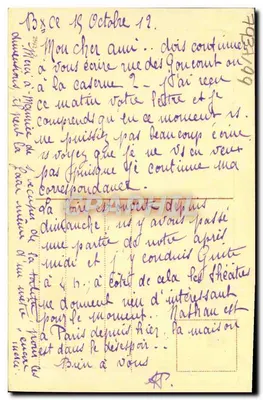 Bxce 15 Octobre 12.
Mon cher ami.. dois continuer
à vous écrire rue des Goncourt ou
à la caserne ? - J'ai reçu
ce matin votre lettre et je
comprends qu'en ce moment vs. ne
puissiez pas beaucoup écrire
vs voyez que je ne vs en veux
pas puisque je continue ma
correspondance.
La foire est morte depuis
dimanche ns y avons passé
une partie de notre après
midi et j'y conduis
à 4 h. à côté de cela les théâtres
ne donnent rien d'intéressant
pour le moment. Nathan est
à Paris depuis hier, la maison
est dans le désespoir..
Bien à vous
Mimi s'occupe de la toilette, pour les
dimensions